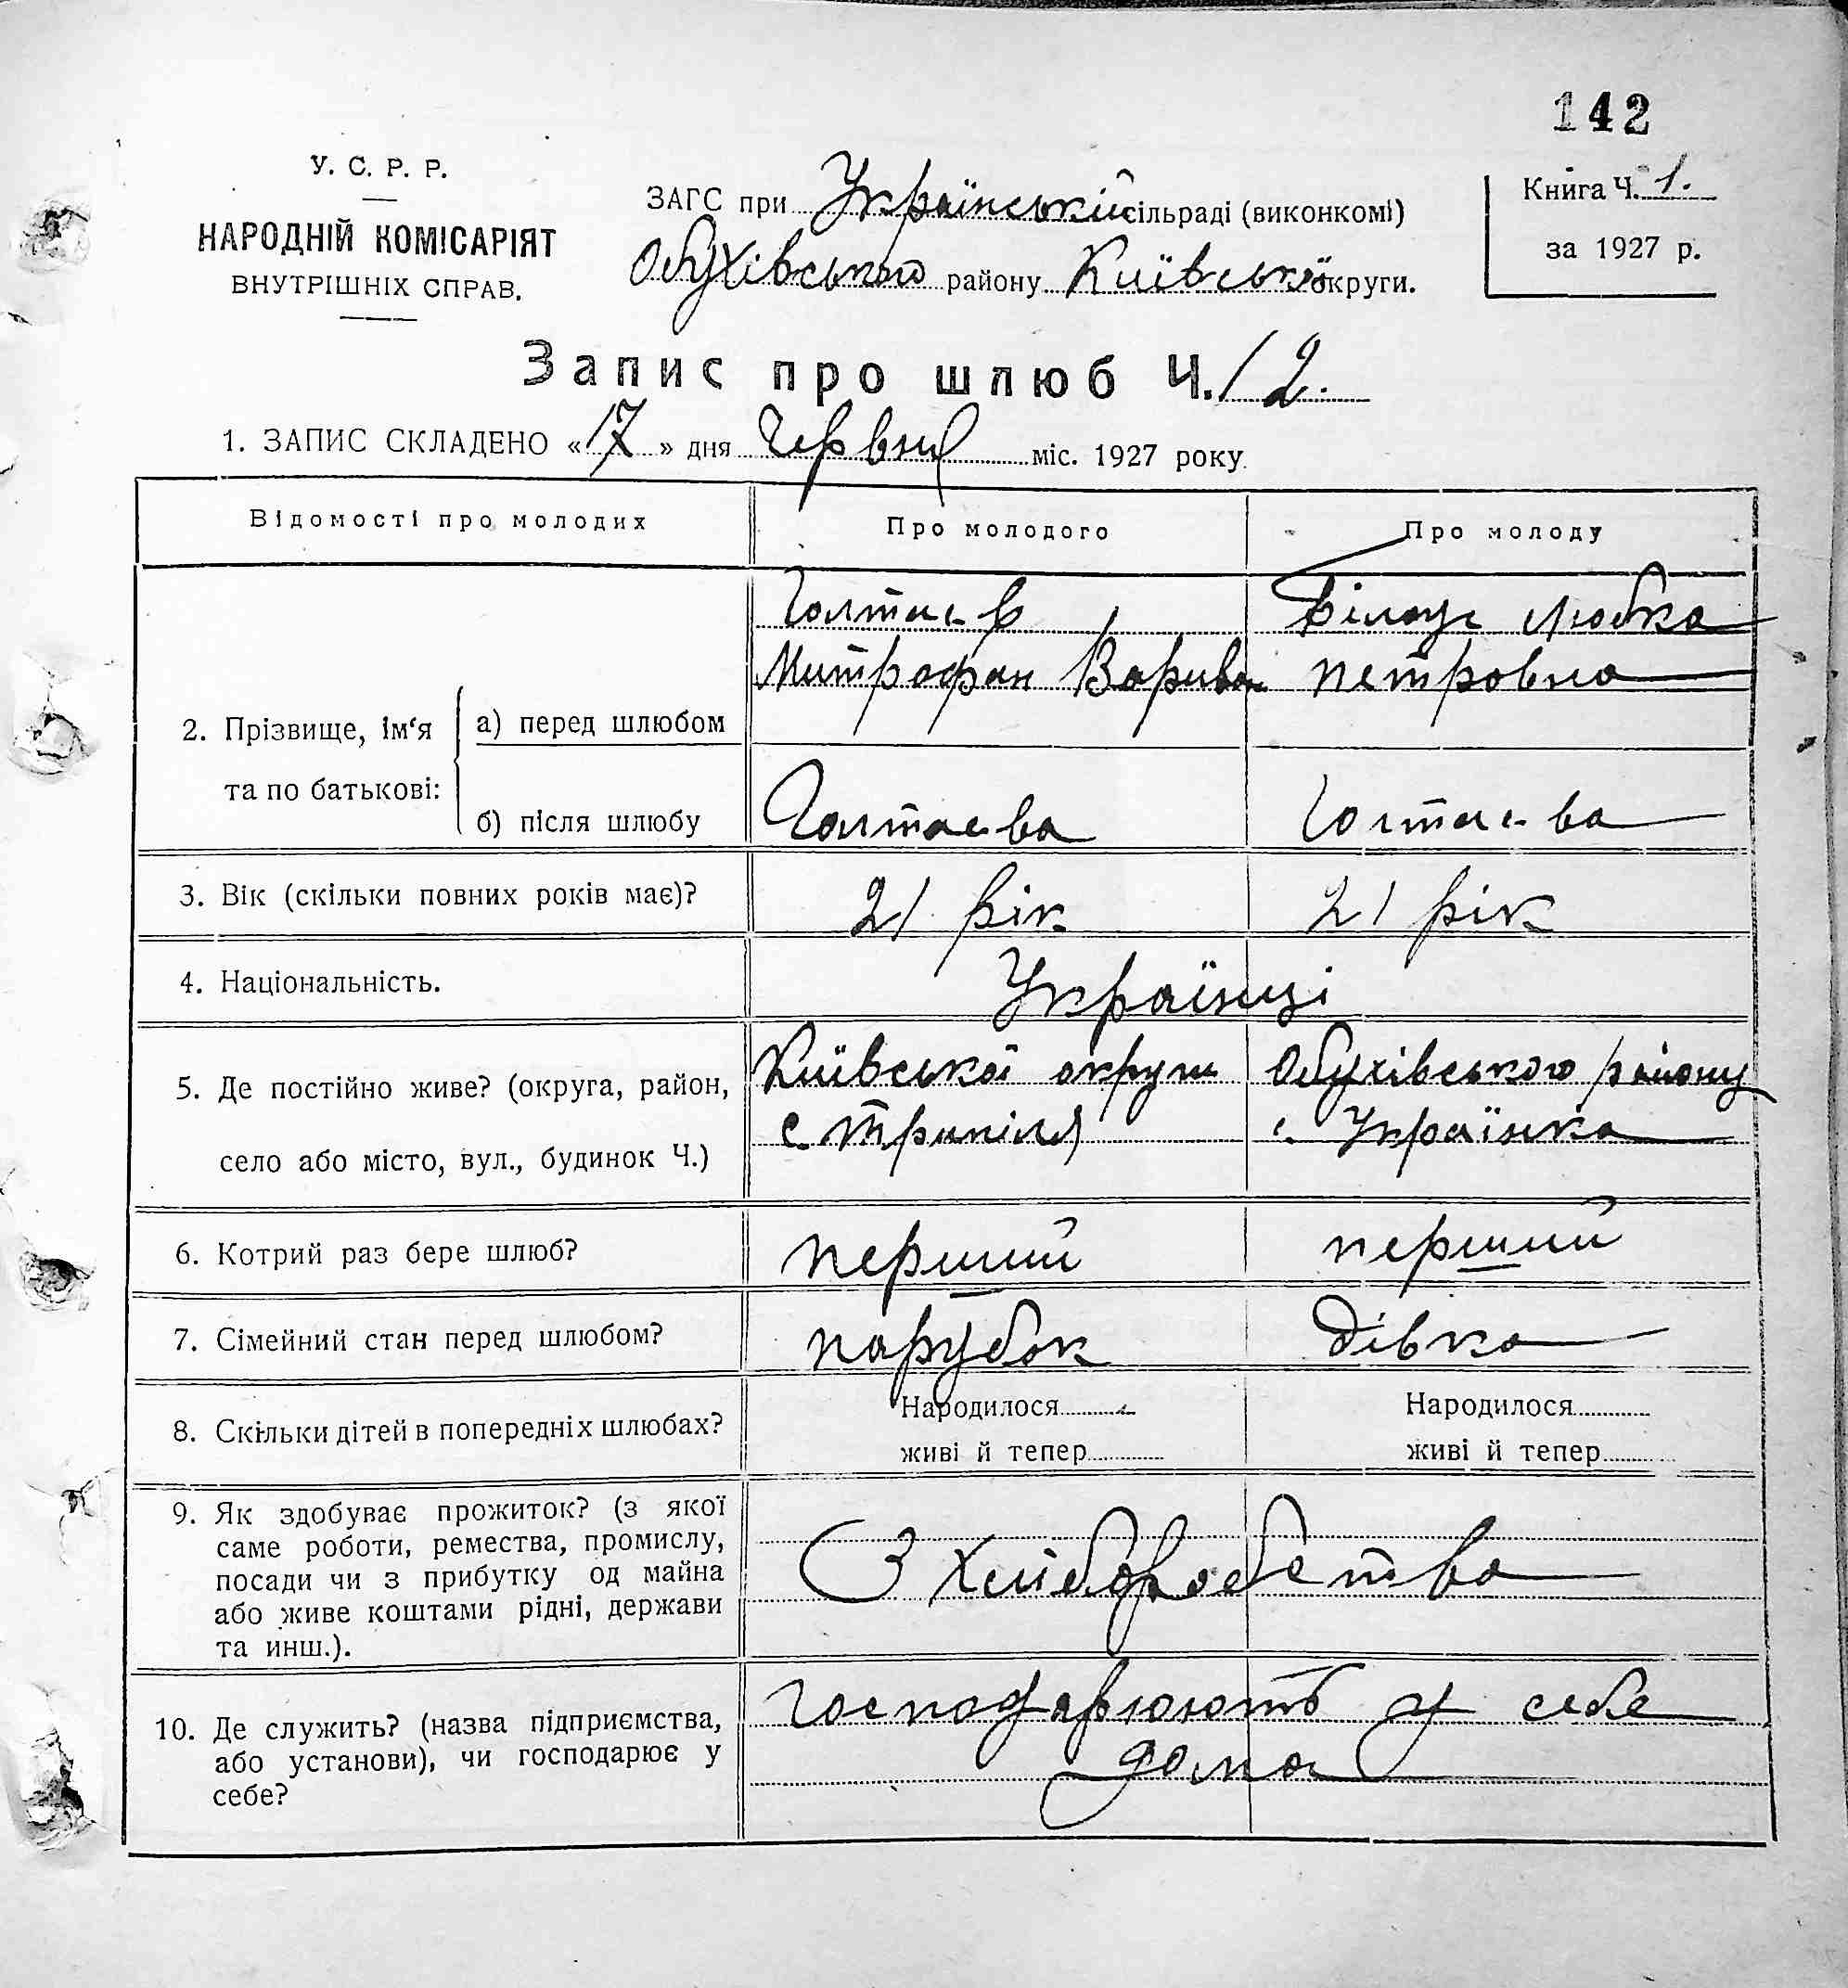 142
У. С. Р. Р.
НАРОДНІЙ КОМІСАРІЯТ
ВНУТРІШНІХ СПРАВ.
ЗАГС при Українській сільраді (виконкомі)
Обухівського району Київської округи.
Книга Ч. 1.
за 1927 р.
Запис про шлюб Ч. 12.
1. ЗАПИС СКЛАДЕНО «17» дня Червня міс. 1927 року
Відомості про молодих Про молодого Про молоду
2. Прізвище, ім'я та по батькові:
а) перед шлюбом
Голтаєв
Митрофан
Білоус Любка
Петровна
б) після шлюбу
Голтаєва
Голтаєва
3. Вік (скільки повних років має)? 21 рік 21 рік
4. Національність. Українці
5. Де постійно живе? (округа, район,
село або місто, вул., будинок Ч.)
Київської округи
с Трипілля
Обухівського району
с. Українка
6. Котрий раз бере шлюб? перший перший
7. Сімейний стан перед шлюбом? парубок дівка
8. Скільки дітей в попередніх шлюбах? Народилося Народилося
живі й тепер живі й тепер
9. Як здобуває прожиток? (з якої
саме роботи, ремества, промислу,
посади чи з прибутку од майна
або живе коштами рідні, держави
та инш.).
З хліборобства
10. Де служить? (назва підприємства,
або установи), чи господарює у
себе?
господарюють у себе
дома